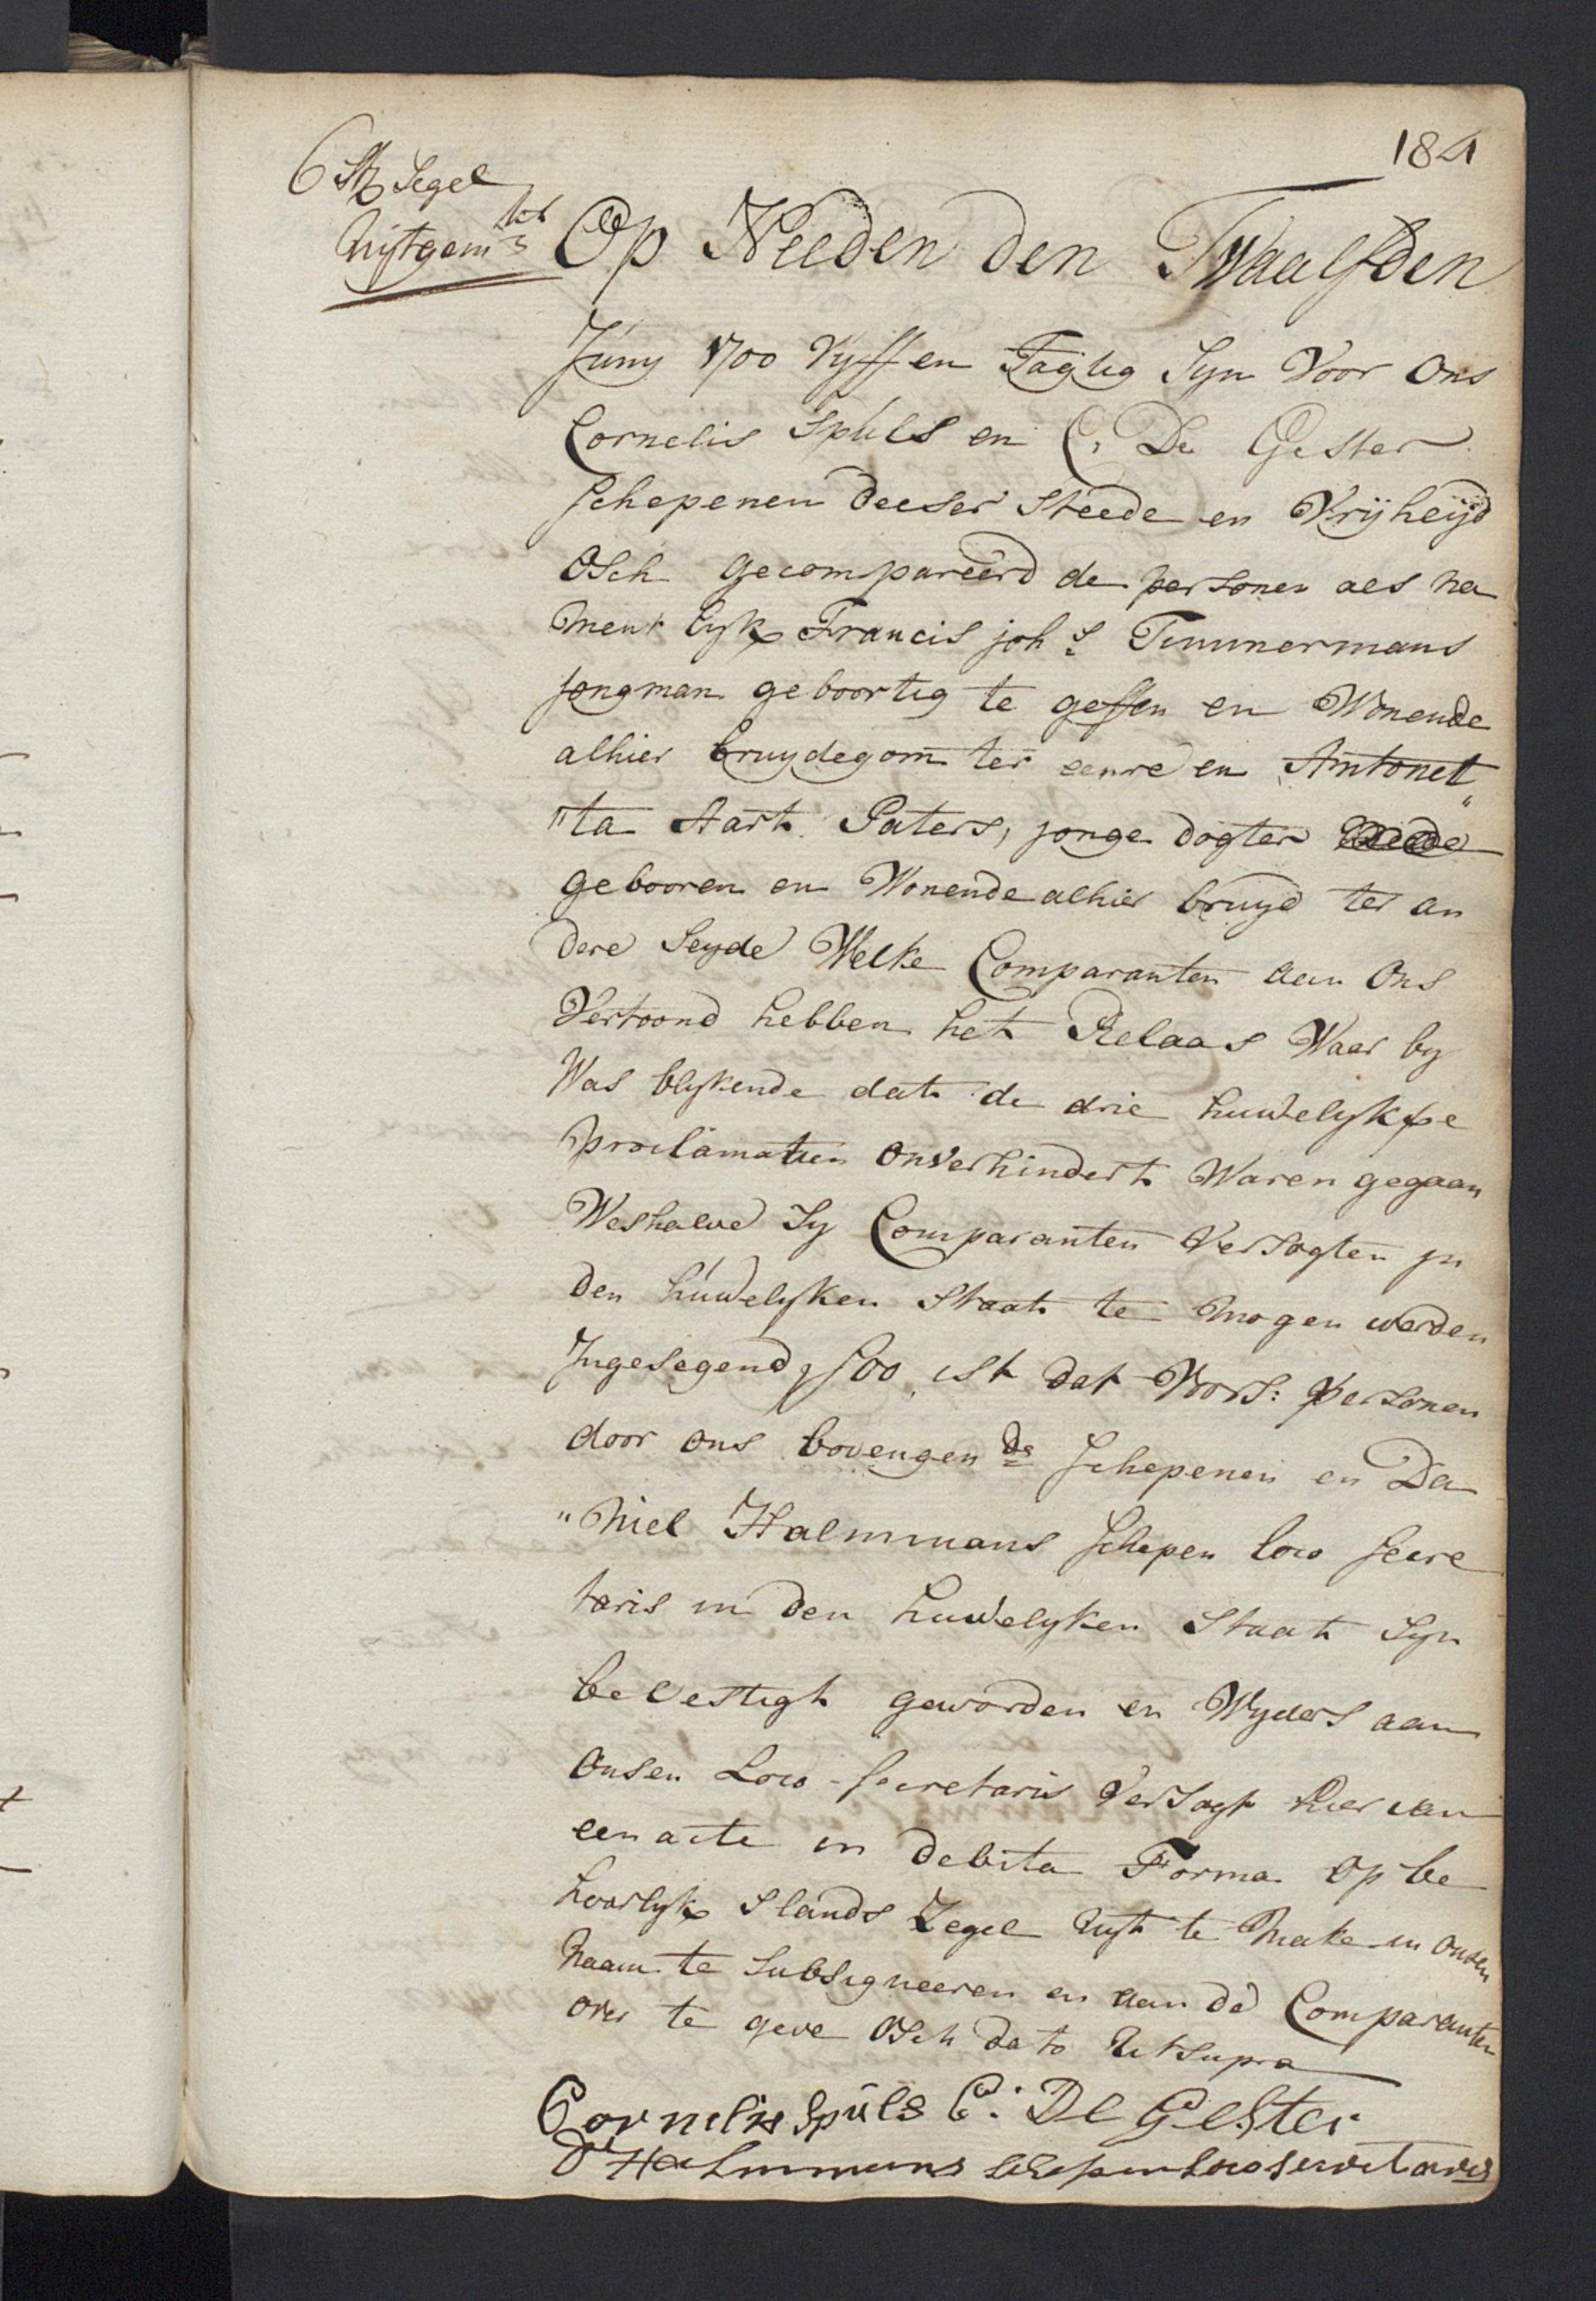 184
6 St Segel
uijtgem kt
Op Heeden den Twaalfden
Juny 1700 Vyff en Tagtig Syn Voor Ons
Cornelis Spuls en C, De Gester
schepenen deeser Steede en Vrijheijd
Osch gecompareerd de personen als na
ment lyk Francis joh s Timmermans
jongman geboortig te geffen en Wonende
alhier bruydegom ter eenre en Antonet
"ta Aart Paters, jonge dogter
gebooren en Wonende alhier bruyd ter an
dere Seyde Welke Comparanten aan Ons
Vertoond hebben het Relaas Waar by
Was blykende dat de drie huwelykse
proclamatien onverhindert Waren gegaan
Weshalve Sy Comparanten Versogten in
den huwelyken Staat te mogen werden
Ingesegend, soo ist dat Voors: personen
door ons bovengen de schepenen en Da
"niel Halmmans schepen loco secre
taris in den huwelyken Staat Syn
bevestigt geworden en Wyders aan
onsen Loco-secretaris Versogt hier van
een acte in debita Forma op be
hoorlyk Slands Zegel uyt te make in onsen
naam te Subsigneeren en aan de Comparanten
over te geve Osch dato Ut supra
Cornelis Spuls C: De Gester
D Halmmans schepen loco secretaris